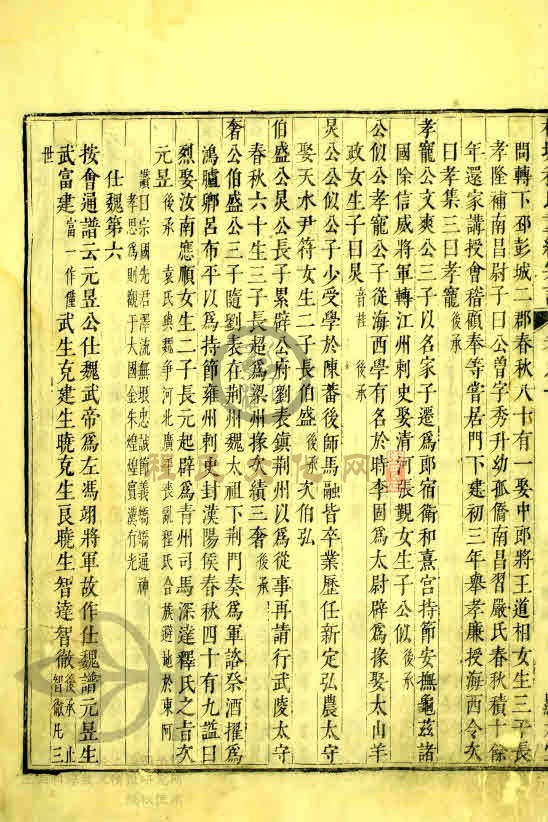 問轉下邳彭城二郡春秋八十有一娶中郎將王道相女生三子長
孝隆補南昌尉子曰公曾字秀升幼孤僑南昌習嚴氏春秋積十餘
年還家講授會稽顧奉等嘗居門下建初三年舉孝廉授海西令次
曰孝集三曰孝寵後承
孝寵公文爽公三子以名家子遷爲郎宿衛和熹宮持節安撫龜茲諸
國除信威將軍轉江州刺史娶清河張覲女生子公似後承
公似公孝寵公子從海西學有名於時李固爲太尉辟爲掾娶太山羊
政女生子曰炅音桂後承
炅公公似公子少受學於陳蕃後師馬融皆卒業歷任新定弘農太守
娶天水尹符女生二子長伯盛後承次伯弘
伯盛公炅公長子累辟公府劉表鎮荆州以爲從事再請行武陵太守
春秋六十生三子長超爲梁州掾次績三奢後承
奢公伯盛公三子隨劉表在荆州魏太祖下荆門奏爲軍諮祭酒擢爲
鴻臚卿呂布平以爲持節雍州刺史封漢陽侯春秋四十有九謚曰
烈娶汝南應順女生二子長元起辟爲青州司馬深達釋氏之旨次
元昱後承袁氏與魏爭河北廣平喪亂程氏合族避地於東阿
讚曰宗國先君澤流無垠忠誠節義撟撟通神
孝思爲則觀于大國金朱煌煌賓漢有光
仕魏第六
按會通譜云元昱公仕魏武帝爲左馮翊將軍故作仕魏譜元昱生
武富建富一作僅武生克建生曉克生良曉生智達智徹後承智徹凡三
世